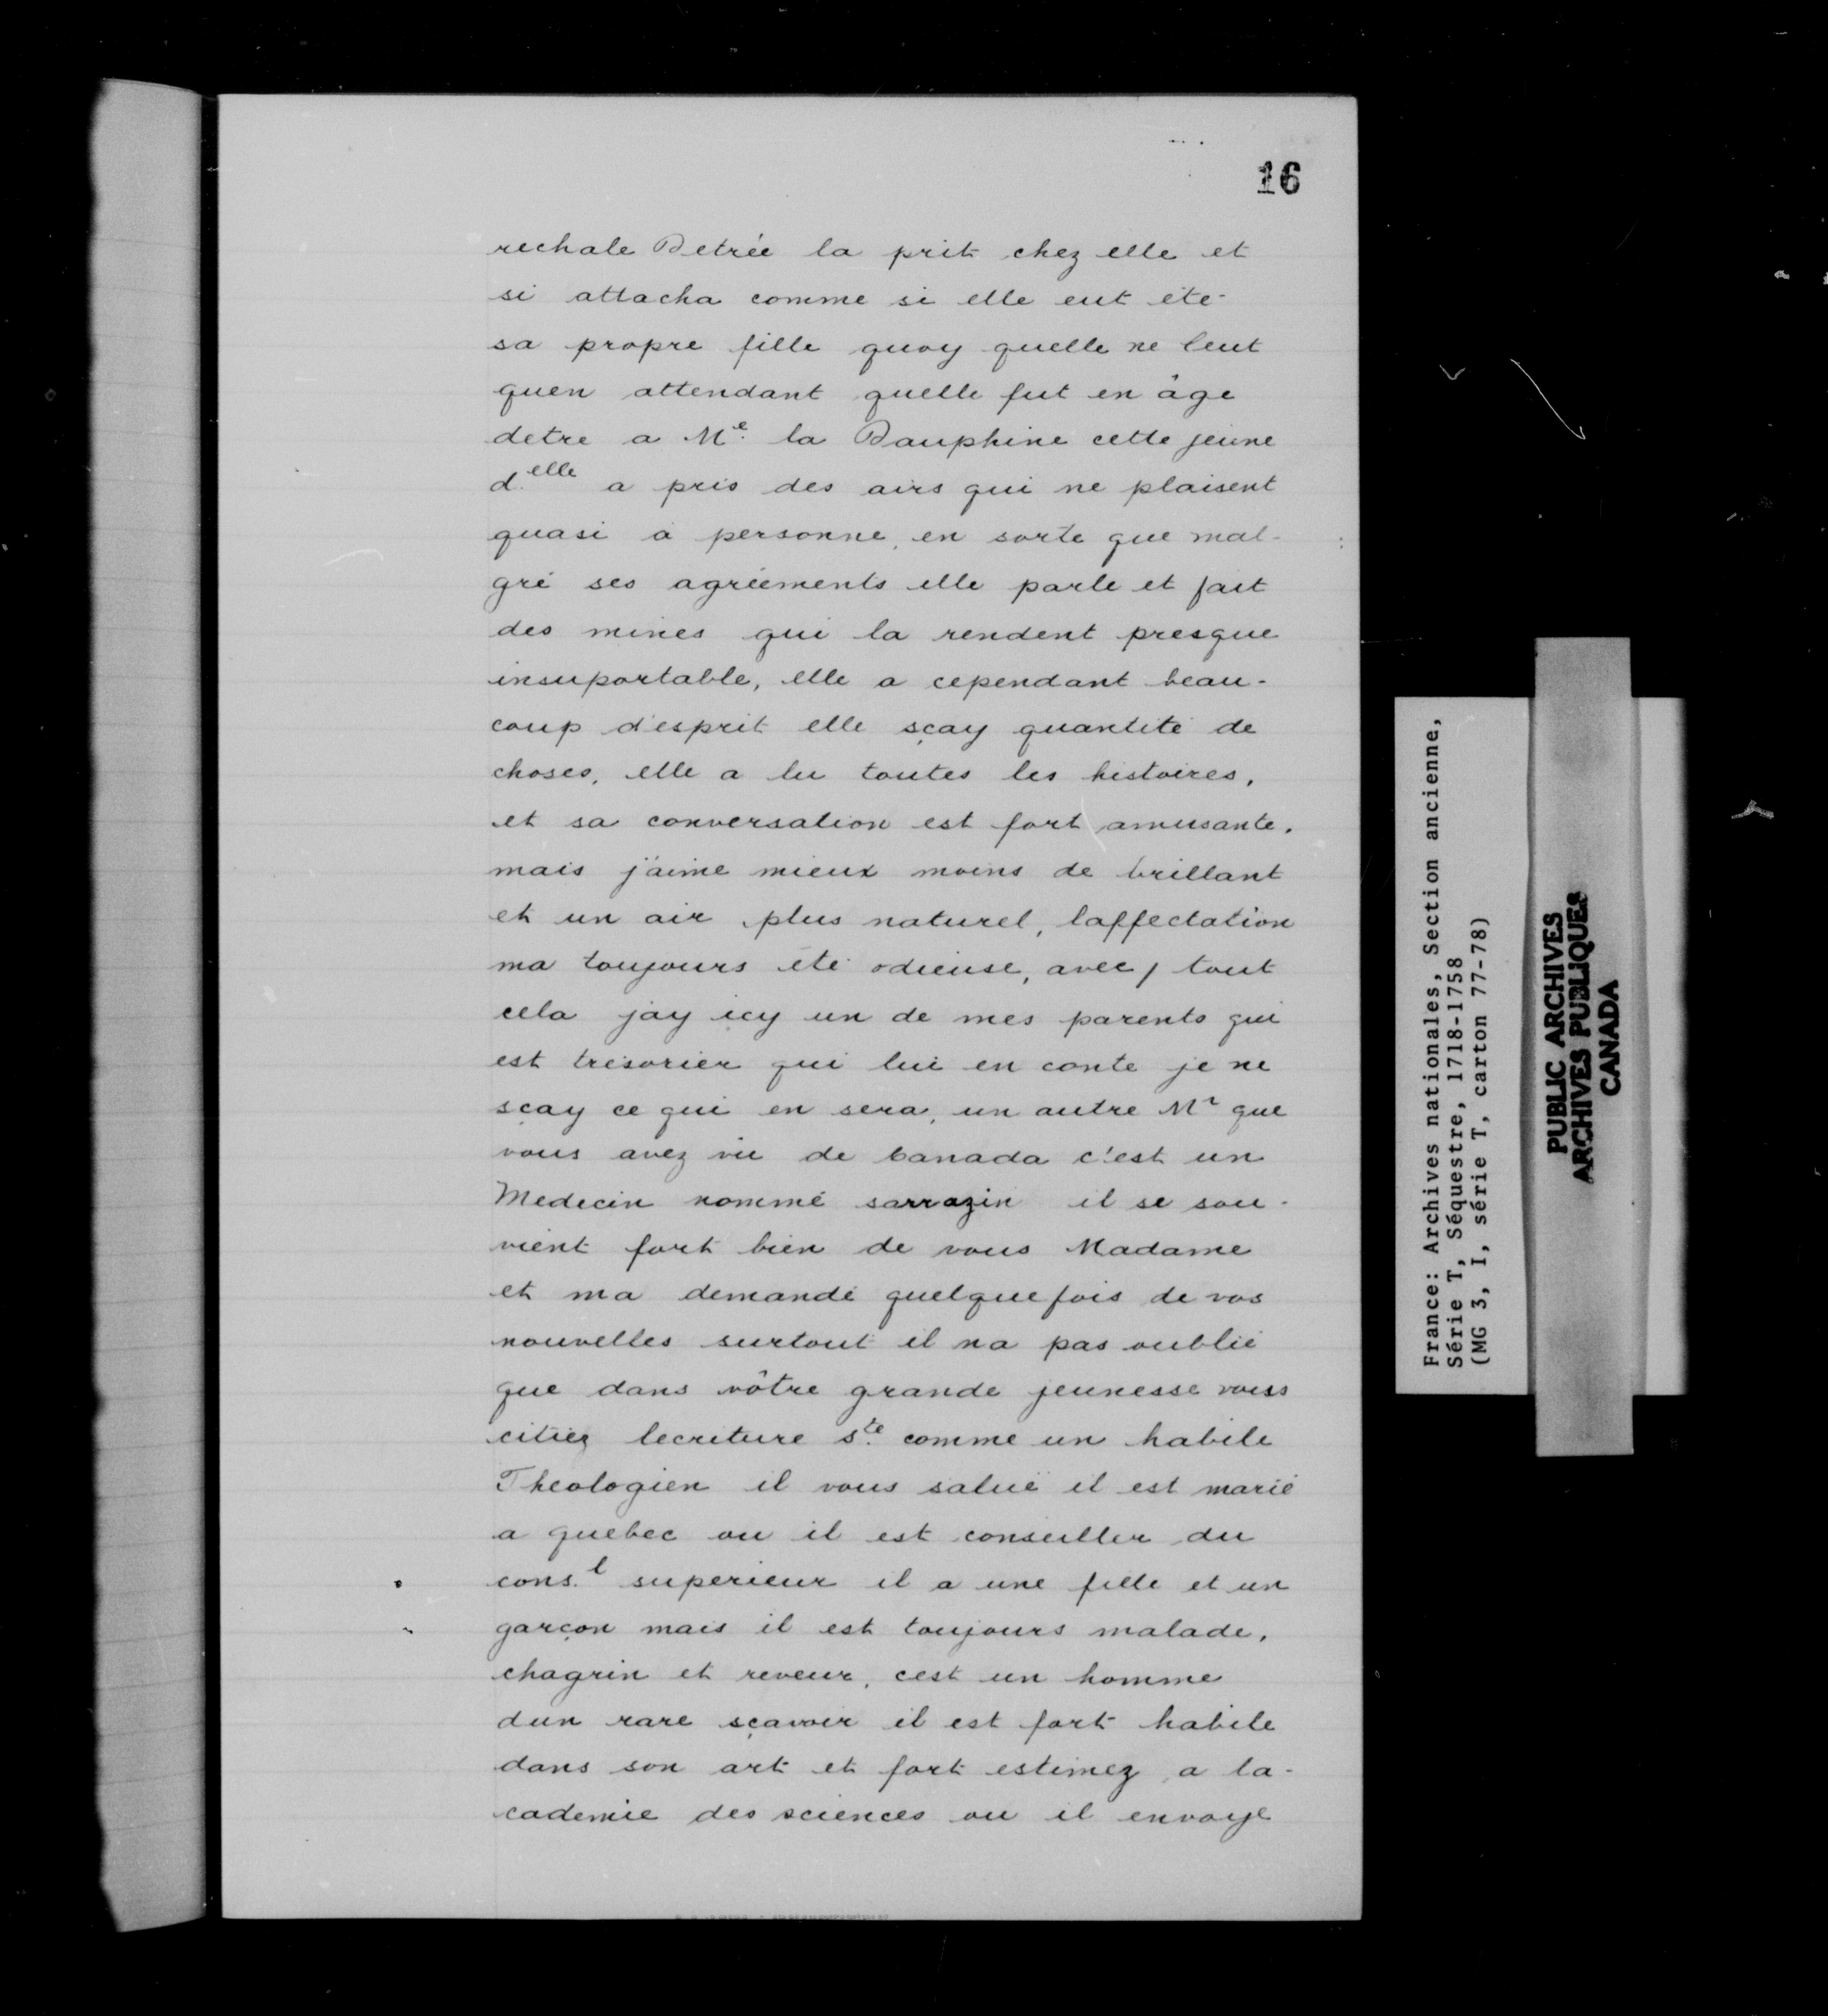 16
rechale Detrée la prit chez elle et
si attacha comme si elle eut été
sa propre fille quoy quelle ne leut
quen attendant quelle fut en âge
detre a Me. la Dauphine cette jeune
d.elle a pris des airs qui ne plaisent
quasi à personne, en sorte que mal-
gré ses agréements elle parle et fait
des mines qui la rendent presque
insuportable, elle a cependant beau-
coup d'esprit elle sçay quantité de
choses, elle a lu toutes les histoires,
et sa conversation est fort amusante,
mais j'aime mieux moins de brillant
et un air plus naturel, laffectation
ma toujours été odieuse, avec, tout
cela jay icy un de mes parents qui
est trésorier qui lui en conte je ne
sçay ce qui en sera, un autre Mr que
vous avez vû de Canada c'est un
Medecin nommé sarrazin il se sou-
vient fort bien de vous Madame
et ma demandé quelque fois de vos
nouvelles surtout il na pas oublié
que dans vôtre grande jeunesse vous
citiez lecriture ste. comme un habile
Theologien il vous salue il est marié
a quebec ou il est conseiller du
cons.l superieur il a une fille et un
garçon mais il est toujours malade,
chagrin et reveur, cest un homme
dun rare sçavoir il est fort habile
dans son art et fort estimez a la-
cademie des sciences ou il envoye
France: Archives nationales, Section ancienne,
Série T, Séquestre, 1718-1758
(MG 3, I, série T, carton 77-78)
PUBLIC ARCHIVES
ARCHIVES PUBLIQUES
CANADA